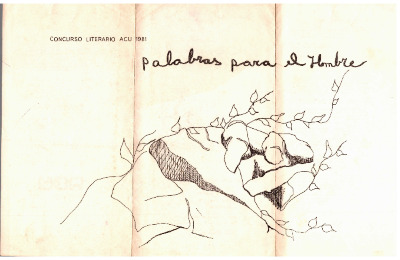 CONCURSO LITERARIO ACU 1981
palabras para el Hombre